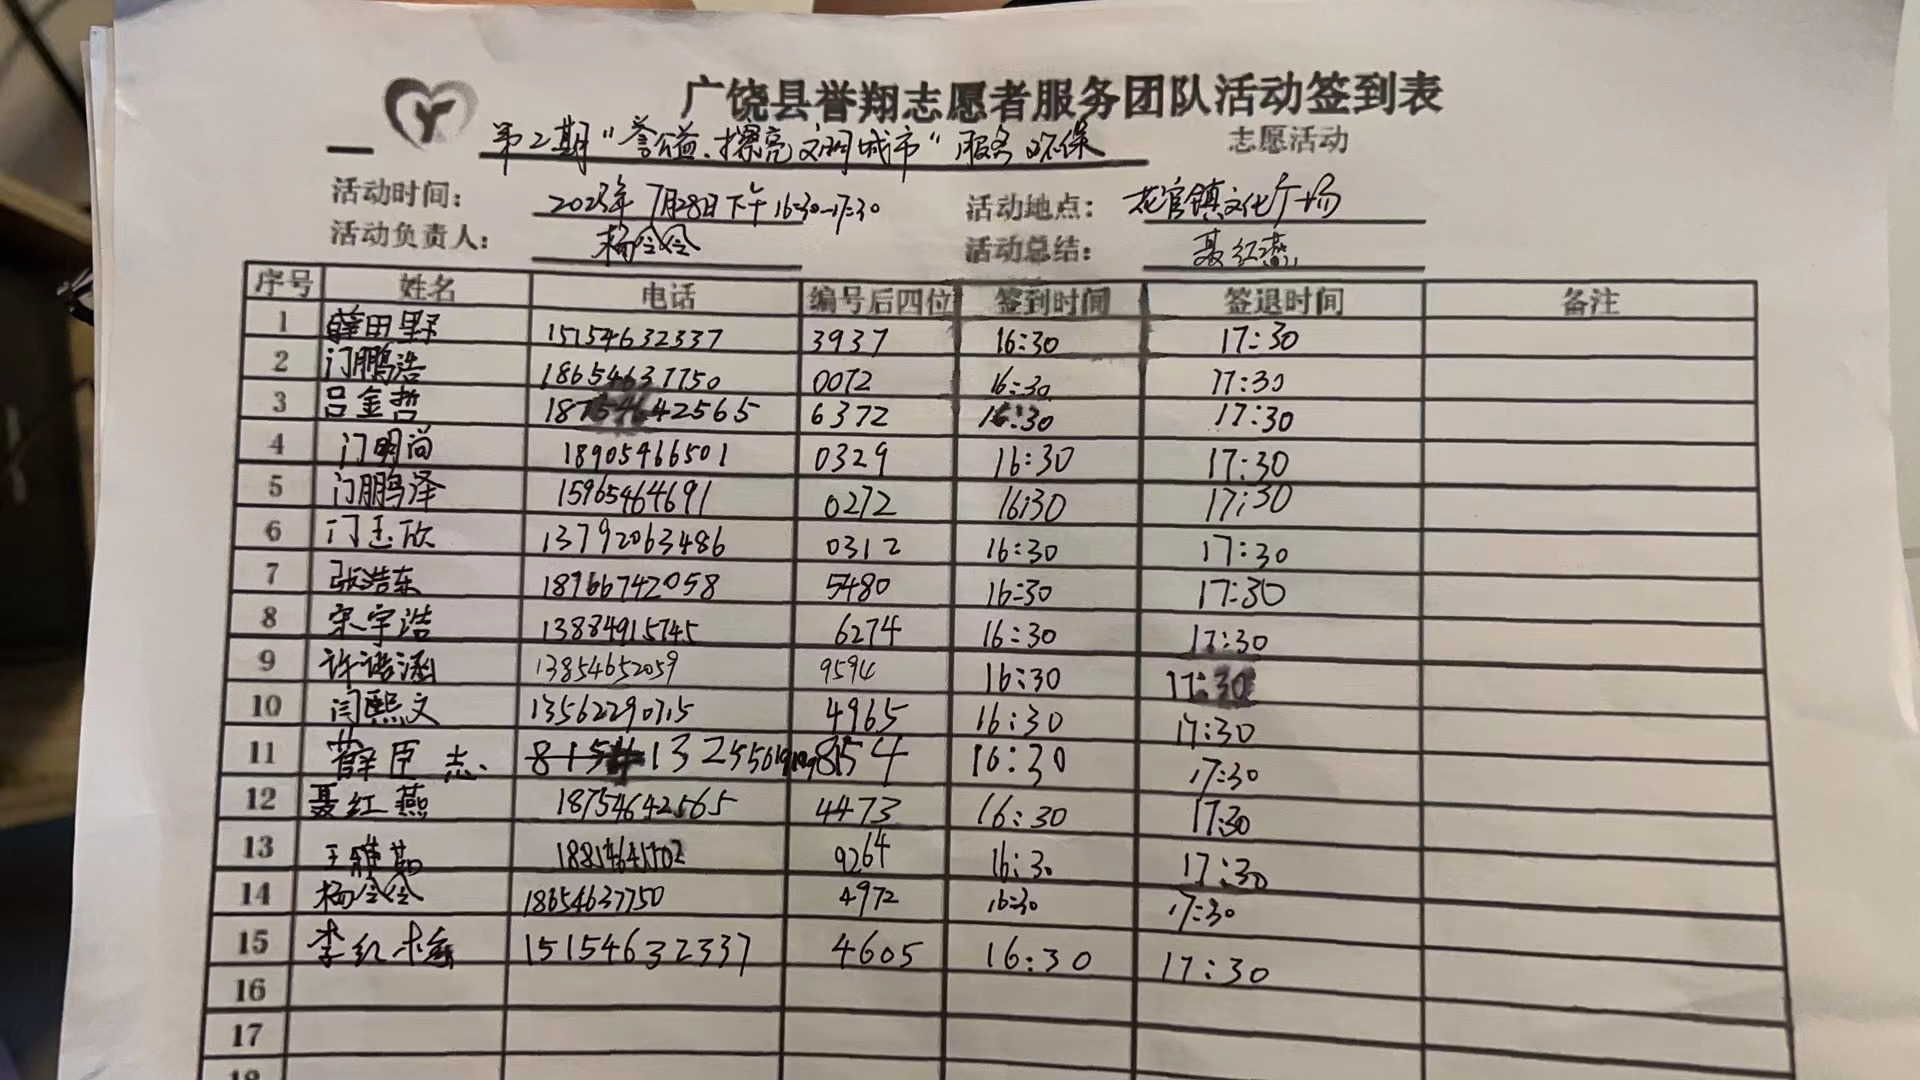 广饶县誉翔志愿者服务团队活动签到表
第2期“誉公益、擦亮文明城市”服务环保 志愿活动
活动时间： 2023年7月28日下午16:30-17:30 活动地点： 花官镇文化广场
活动负责人： 杨令令 活动总结： 聂红燕
序号 姓名 电话 编号后四位 签到时间 签退时间 备注
1 薛田野 15154632337 3937 16:30 17:30
2 门鹏浩 18654637750 0072 16:30 17:30
3 吕金哲 18754642565 6372 16:30 17:30
4 门明尚 18905466501 0329 16:30 17:30
5 门鹏泽 15965464691 0272 16:30 17:30
6 门玉欣 13792063486 0312 16:30 17:30
7 张浩东 18966742058 5480 16:30 17:30
8 宋宇浩 13884915745 6274 16:30 17:30
9 许诺涵 13854652059 9594 16:30 17:30
10 闫熙文 13562290715 4965 16:30 17:30
11 薛臣志 8154 16:30 17:30
12 聂红燕 18754642565 4473 16:30 17:30
13 9264 16:30 17:30
14 杨令令 18654637750 4972 16:30 17:30
15 李红梅 15154632337 4605 16:30 17:30
16
17
18